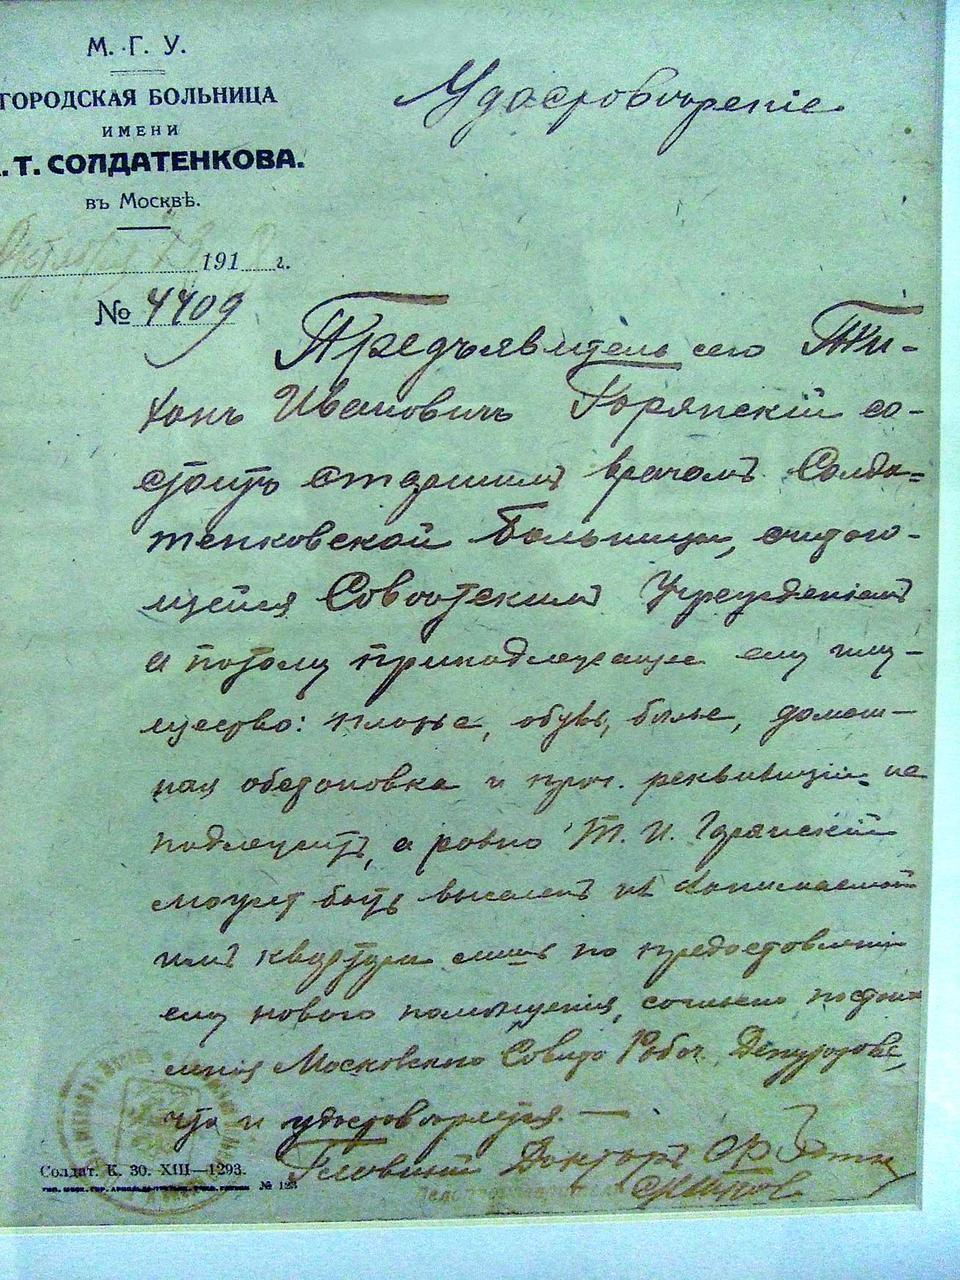 М. Г. У.
ГОРОДСКАЯ БОЛЬНИЦА
ИМЕНИ
. Т. СОЛДАТЕНКОВА.
въ Москвѣ.
Октября 23 1918 г.
№ 4409
Удостовѣреніе
Предъявитель сего Ти-
хонъ Ивановичъ Горянскій со-
стоитъ старшимъ врачомъ Солда-
тенковской Больницы, считаю-
щейся Совѣтскимъ Учрежденіемъ
а потому принадлежащее ему иму-
щество: платье, обувь, бѣлье, домаш-
няя обстановка и проч. реквизиціи не
подлежитъ, а равно Т. И. Горянскій
можетъ быть выселенъ изъ занимаемой
имъ квартиры лишь по предоставленіи
ему новаго помѣщенія, согласно постанов
ленія Московскаго Совѣта Рабоч. Депутатовъ,
что и удостовѣряется. —
Главный Докторъ
Солдат. К. 30. XIII—1293.